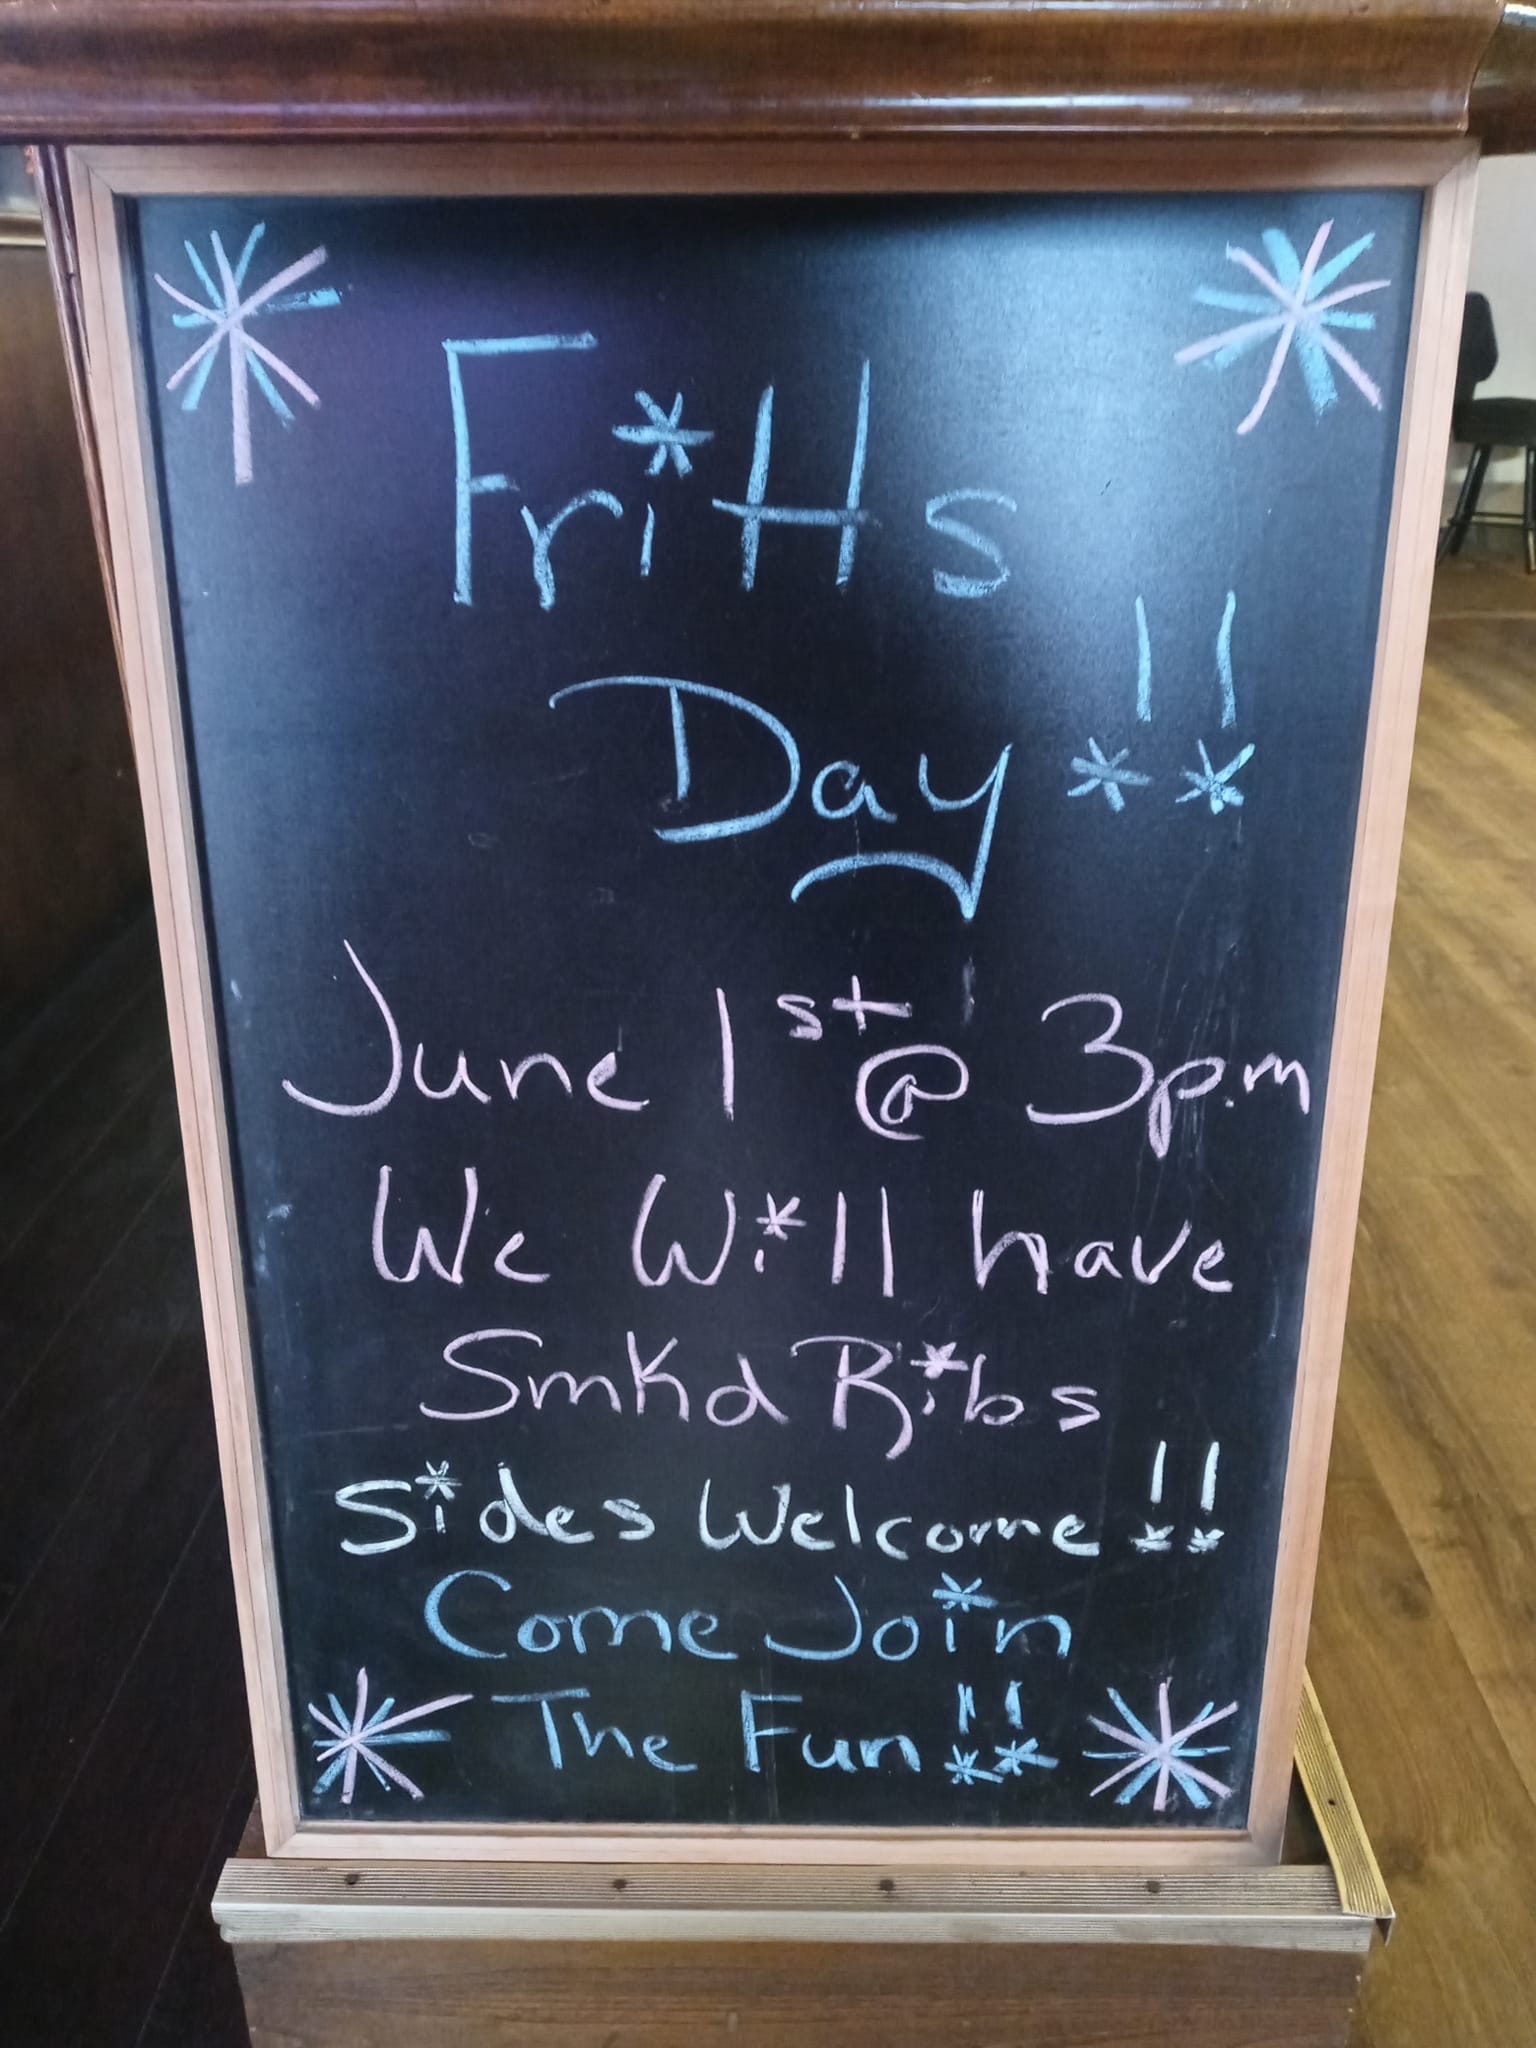 Fritts
Day!!
June 1st @ 3pm
We Will have
Smkd Ribs
Sides Welcome!!
Come Join
The Fun!!